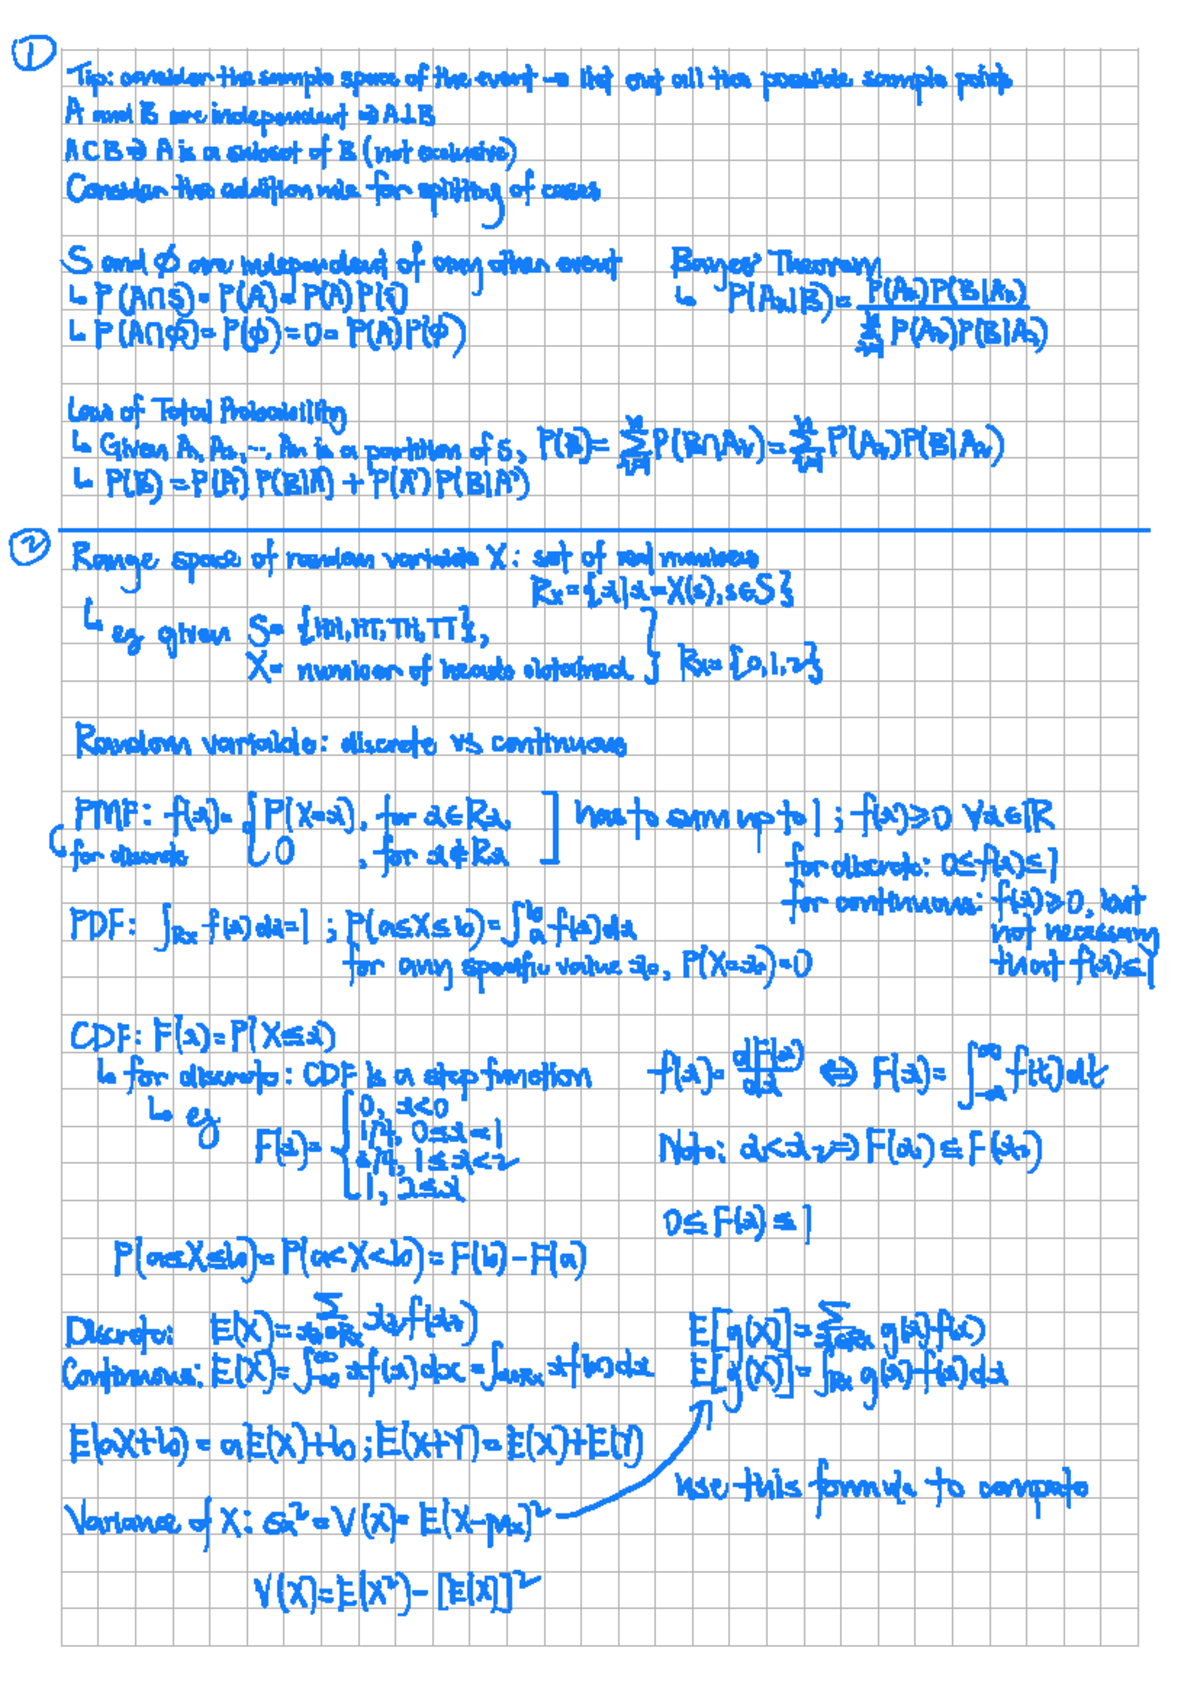 ①
Tip: consider the sample space of the event → list out all the possible sample points
A and B are independent ⇒ A⊥B
A⊂B ⇒ A is a subset of B (not exclusive)
Consider the addition rule for splitting of cases
S and ∅ are independent of any other event
↳ P(A∩S) = P(A) = P(A)P(S)
↳ P(A∩∅) = P(∅) = 0 = P(A)P(∅)
Bayes' Theorem
↳ P(Aₖ|B) = P(Aₖ)P(B|Aₖ) / Σⁿᵢ₌₁ P(Aᵢ)P(B|Aᵢ)
Law of Total Probability
↳ Given A₁, A₂, ..., Aₙ is a partition of S, P(B) = Σⁿᵢ₌₁ P(B∩Aᵢ) = Σⁿᵢ₌₁ P(Aᵢ)P(B|Aᵢ)
↳ P(B) = P(A)P(B|A) + P(A')P(B|A')
②
Range space of random variable X: set of real numbers
Rx = {x|x=X(s), s∈S}
↳ eg given S = {HH, HT, TH, TT},
X = number of heads obtained } Rx = {0,1,2}
Random variable: discrete vs continuous
PMF: f(x) = { P(X=x), for x∈Rx,
0, for x∉Rx ] has to sum up to 1; f(x)≥0 ∀x∈ℝ
for discrete
for discrete: 0≤f(x)≤1
for continuous: f(x)≥0, but
not necessary
that f(x)≤1
PDF: ∫Rx f(x)dx=1; P(a≤X≤b) = ∫ₐᵇ f(x)dx
for any specific value x₀, P(X=x₀)=0
CDF: F(x) = P(X≤x)
↳ for discrete: CDF is a step function
↳ eg
F(x) = { 0, x<0
1/4, 0≤x<1
3/4, 1≤x<2
1, 2≤x
f(x) = dF(x)/dx ⇔ F(x) = ∫₋∞^∞ f(t)dt
Note: x₁<x₂ ⇒ F(x₁) ≤ F(x₂)
0≤F(x)≤1
P(a≤X≤b) = P(a<X<b) = F(b)-F(a)
Discrete: E(X) = Σ xᵢ∈Rx xᵢf(xᵢ)
Continuous: E(X) = ∫₋∞^∞ xf(x)dx = ∫x∈Rx xf(x)dx
E[g(X)] = Σ x∈Rx g(x)f(x)
E[g(X)] = ∫Rx g(x)f(x)dx
E(aX+b) = aE(X)+b; E(X+Y) = E(X)+E(Y)
use this formula to compute
Variance of X: σx² = V(X) = E(X-μx)²
V(X) = E(X²) - [E(X)]²